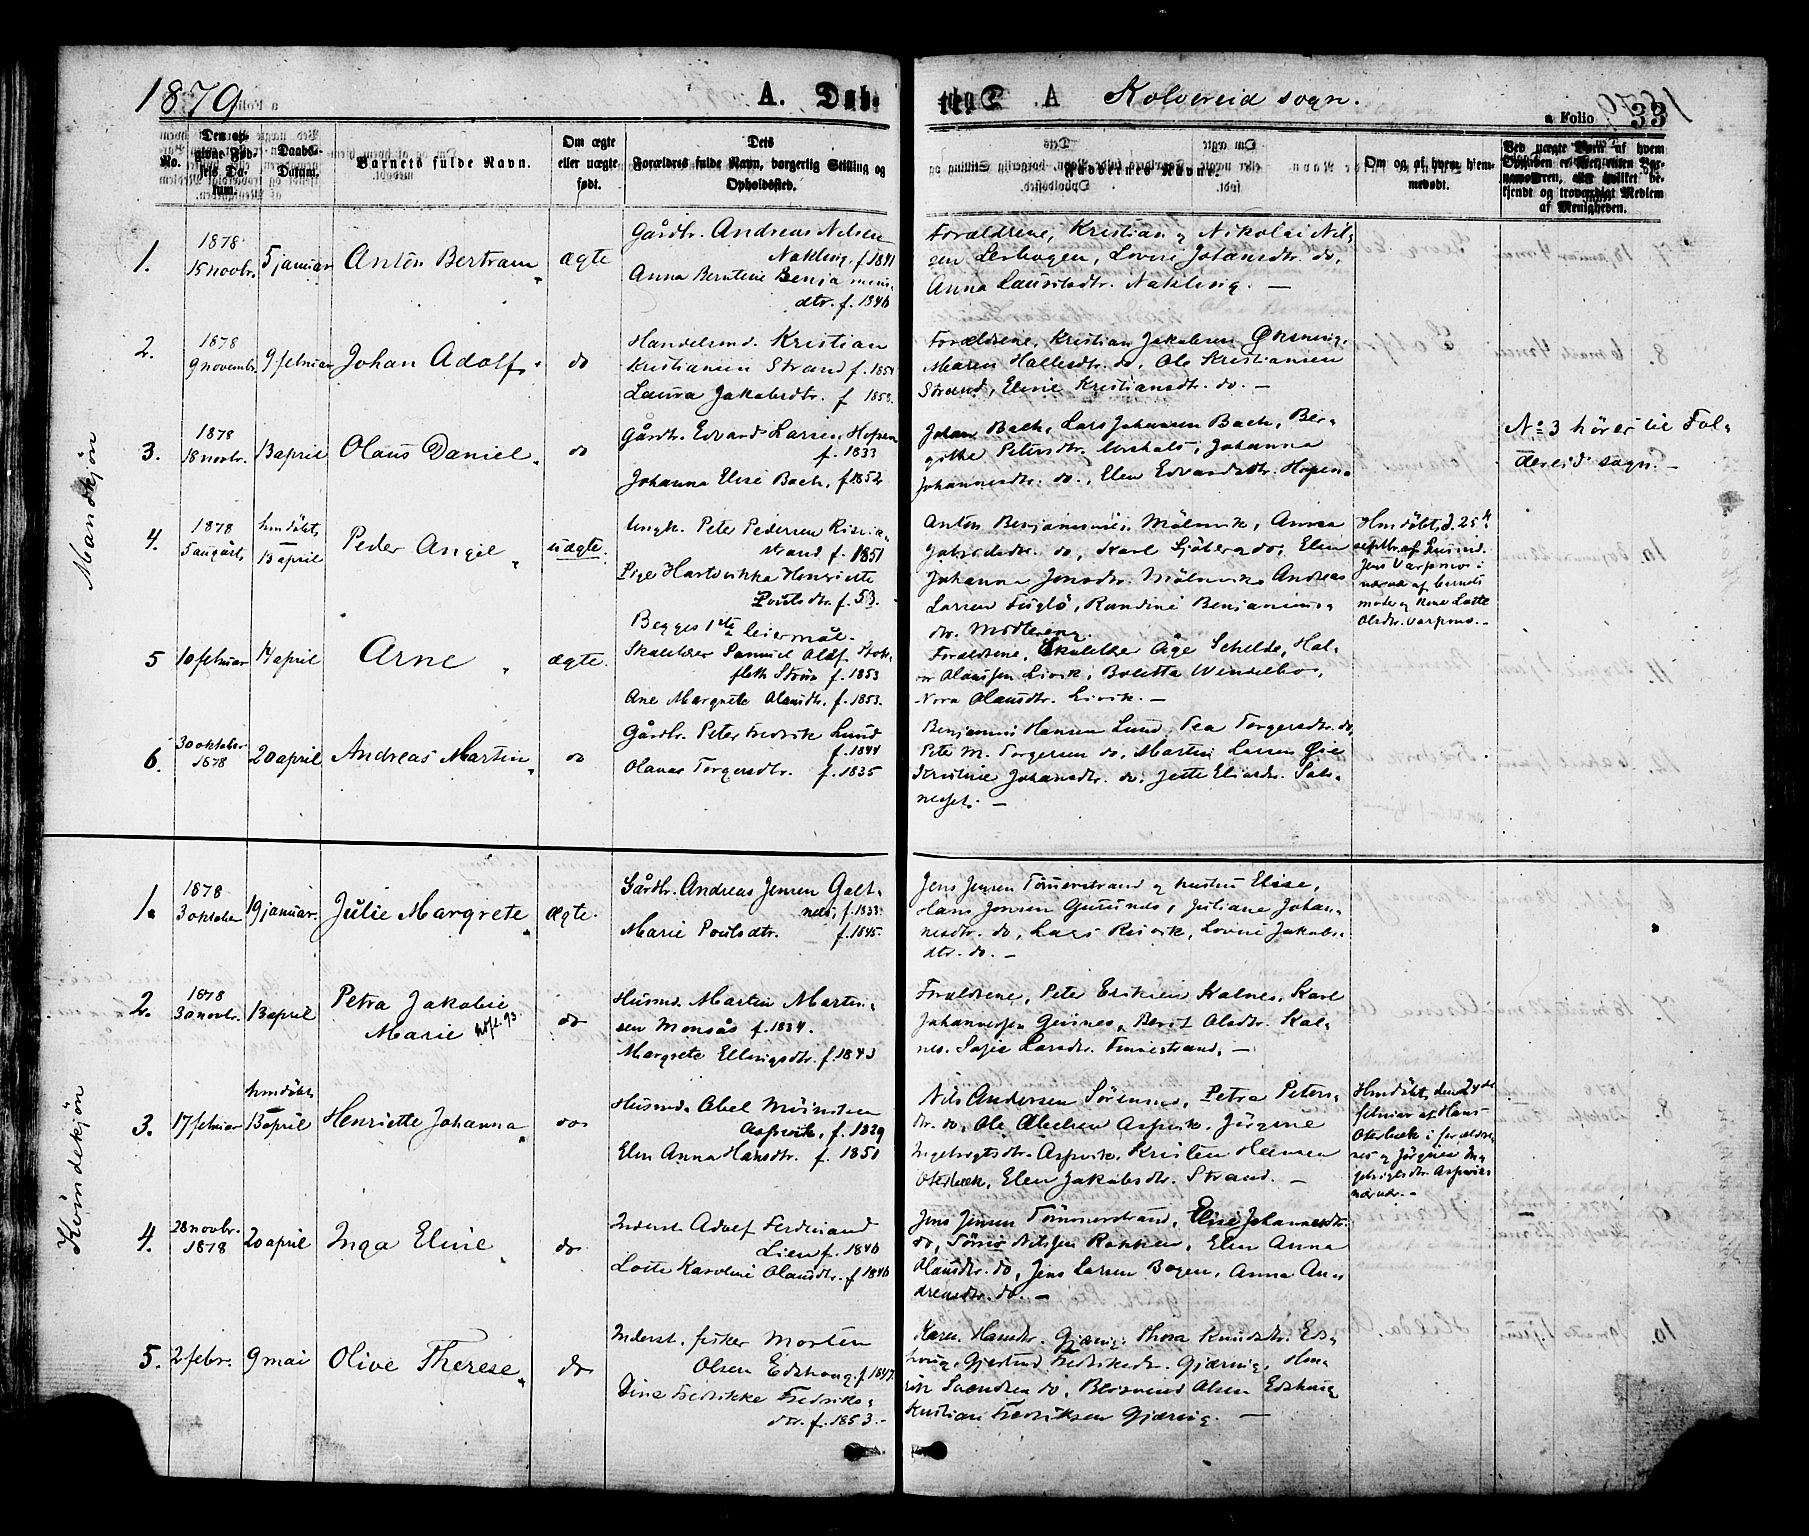 1879
A. Dåb.
A Kolvereid sogn.
a Folio 33
No.
Den opgivne Fødsels Datum.
Daabs-Datum.
Barnets fulde Navn.
Om ægte eller uægte født.
Dets Forældres fulde Navn, borgerlig Stilling og Opholdssted.
Faddernes Navne.
Om og af hvem hjemmedøbt.
Mandkjøn
1. 1878 15 novbr. 5 januar Anton Bertram ægte
Gårdbr. Andreas Nilsen
f. 1841
Anna Berntine Benjamins
dtr. f. 1846
Forældrene, Kristian og Nikolai Nil-
sen Lovise Johansdtr. do,
Anna
2. 1878 9 novembr. 9 februar Johan Adolf do
Handelsmd. Kristian
Kristiansen Strand f. 1851
Laura Jakobsdtr. f 1858.
Forældrene, Kristian Jakobsen
Maren Hallesdtr. do, Ole Kristiansen
Strand, Eline Kristiansdtr. do.
3. 1878 18 novbr. 13 april Olaus Daniel do
Gårdbr. Edvard Larsen Hopen
f. 1833
Johanna Elise Bach, f 1852
Johan Bach, Lars Johansen Bach, Ber-
githe Petersdtr. Johanna
Johannesdtr. do., Elen Edvardsdtr. Hopen
No 3 hører til Fol-
dereid sogn.
4. 1878 5 augūst, hmdöbt, 13 april Peder Angel uægte.
Ungk. Peter Pedersen
strand f. 1851
Pige Hartvikka Henriette
Poulsdtr. f. 53.
Begges 1ste leiermål.
Anton Benjaminsen Mölnvik, Anna
do, Karl Sjöberg do, Elen
Johanna Jonsdtr. Mölnvik Andreas
Larsen Fuglö, Randine Benjamins-
dtr.
Hmdöbt, d. 25de
septbr. af
Jens Varpnes i
nærvær af barnets
moder og Lotte
Olsdtr. Varpnes.
5 10 februar 14 april Arne ægte.
Skolelærer Samuel Olaf Stok-
fleth f. 1853
Ane Margrete Olausdtr. f. 1853.
Forældrene, Skolelær Åge Schelde, Hal-
vor Olaussen Livik, Boletta
Nora Olausdtr. Livik.
6. 30 oktober 1878 20 april Andreas Martin do
Gårdbr. Peter Fredrik Lund
f. 1844
Olava Torgersdtr. f. 1835
Benjamin Hansen Lund, Pea Torgersdtr. do,
Peter M. Torgersen do, Martin Larsen Øie
Kristine Johansdtr. do, Jette Eliasdr. Sals-
nesset.
Kvindekjön
1. 1878 3 oktober 19 januar. Julie Margrete ægte.
Gårdbr. Andreas Jensen Galt-
nes, f. 1833
Marie Poulsdtr. f. 1845.
Jens Jensen Tömmerstrand og hustru Elise,
Hans Jensen Juliane Johan-
nesdtr. do, Lars Risvik, Lovise Jakobs-
dtr. do.
2. 1878 30 novbr. 13 april Petra Jakobie
Marie do
Husmd. Martin Martin-
sen Monsås f. 1834.
Margrete Ellingsdtr. f. 1843
Forældrene, Peter Eriksen Kalnes, Karl
Johannessen Berit Olsdtr. Kal-
nes. Sofie Larsdtr. Finnestrand,
3. 17 februar hmdöbt, 13 april Henriette Johanna do
Husmd. Abel
Aspvik, f. 1829
Elen Anna Hansdtr. f. 1851
Nils Andersen Petra Peters-
dtr. do, Ole Abelsen Aspvik, Jörgine
Ingebrigtsdtr. Aspvik. Kristen Hansen
Oterbæk, Elen Jakobsdtr. Strand.
Hmdöbt, den
februar af Hans
Oterbæk i foræld-
res og Jörgine In-
gebrigtsdtr. Aspviks
nærvær.
4. 28 novbr. 1878 20 april Inga Eline do
Inderst. Adolf Ferdinand
Lien f. 1846
Lotte Karoline Olausdtr. f 1846
Jens Jensen Tömmerstrand, Elise Johannesdtr.
do, Nilssen Rokken, Elen Anna
Olausdtr. do, Jens Larsen Bogen, Anna An-
dreasdtr. do.
5. 2 febr. 9 mai Olive Therese do
Inderst. fisker Morten
Olsen Edshoug f 1847.
Dina Fredrikke Fredriks-
dtr. f. 1853.
Karen Hansdtr. Gjæring. Thora Knudsdtr. Eds-
houg, Gjertrud Fredriksdtr. Gjæring, Hen-
rik Svendsen do, Olsen Edshoug
Kristian Fredriksen Gjæring.